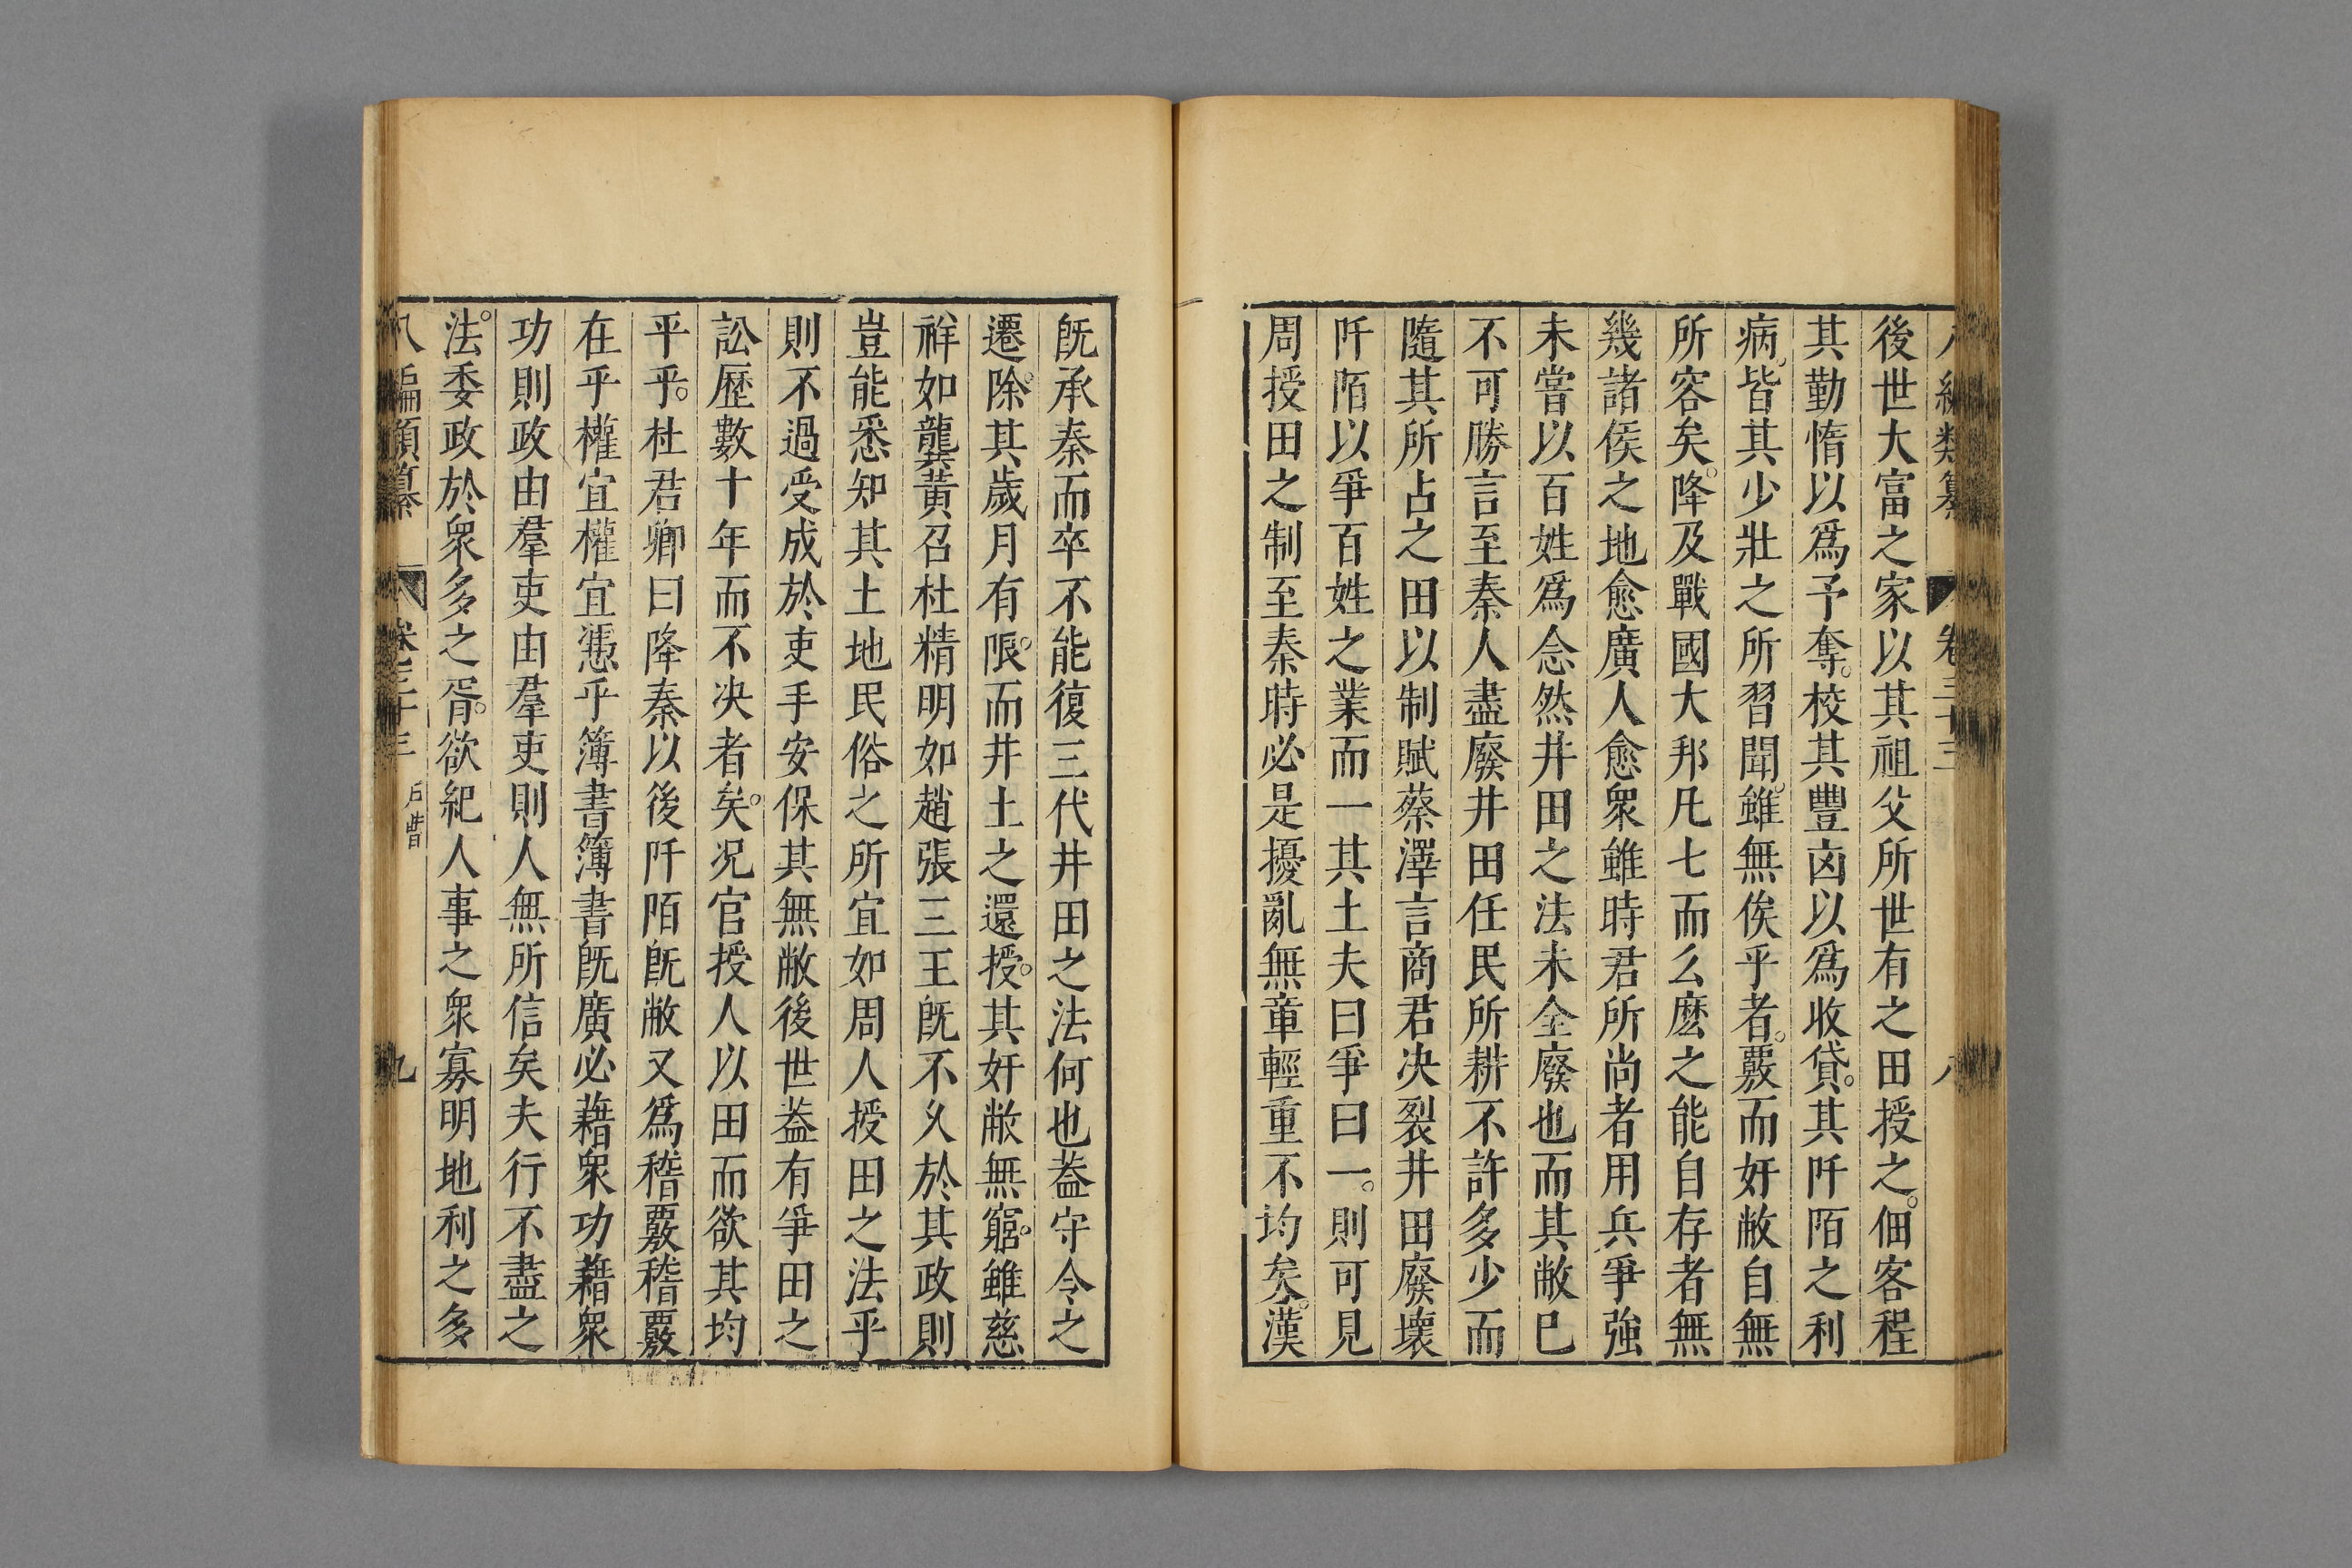 後世大富之家以其祖父所世有之田授之。佃客程
其勤惰以爲予奪。校其豐凶以爲收貸。其阡陌之利
病。皆其少壯之所習聞。雖無俟乎者。覈而奸敝自無
所容矣。降及戰國大邦凡七而么麽之能自存者無
幾諸侯之地愈廣人愈衆雖時君所尚者用兵爭強
未嘗以百姓爲念然井田之法未全廢也而其敝已
不可勝言至秦人盡廢井田任民所耕不許多少而
隨其所占之田以制賦蔡澤言商君决裂井田廢壞
阡陌以爭百姓之業而一其土夫曰爭曰一。則可見
周授田之制至秦時必是擾亂無章輕重不均矣。漢
旣承秦而卒不能復三代井田之法何也葢守令之
遷。除。其歲月有。限。而井土之還授。其奸敝無窮。雖慈
祥如龔黃召杜精明如趙張三王旣不久於其政則
豈能悉知其土地民俗之所宜如周人授田之法乎
則不過受成於吏手安保其無敝後世葢有爭田之
訟歷數十年而不決者矣。况官授人以田而欲其均
平乎。杜君卿曰降秦以後阡陌旣敝又爲稽覈稽覈
在乎權宜權宜憑乎簿書簿書旣廣必藉衆功藉衆
功則政由羣吏由羣吏則人無所信矣夫行不盡之
法。委政於衆多之胥。欲紀人事之衆寡明地利之多
八編類纂 卷三十三 戶曹 九